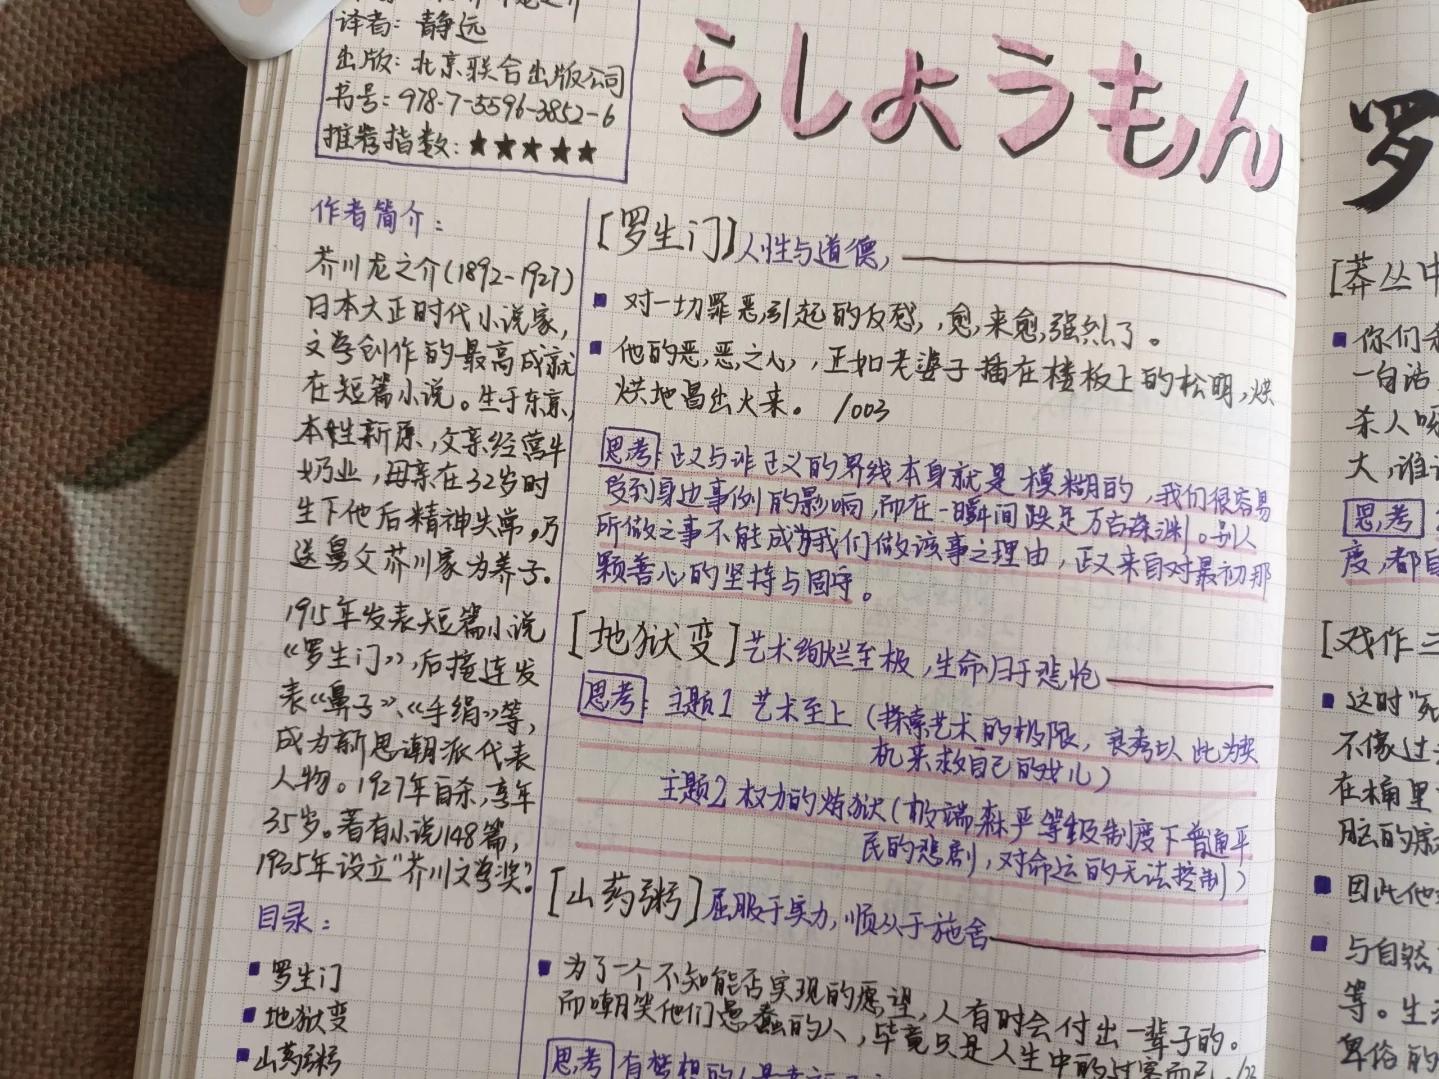 译者：静远
出版：北京联合出版公司
书号：978-7-5596-3852-6
推荐指数：★★★★★
らしょうもん
作者简介：
芥川龙之介(1892-1927)
日本大正时代小说家，
文学创作的最高成就
在短篇小说。生于东京，
本姓新原，父亲经营牛
奶业，母亲在32岁时
生下他后精神失常，乃
送舅父芥川家为养子。
1915年发表短篇小说
《罗生门》，后接连发
表《鼻子》、《手绢》等，
成为新思潮派代表
人物。1927年自杀，享年
35岁。著有小说148篇，
1935年设立“芥川文学奖”。
目录：
■ 罗生门
■ 地狱变
■ 山药粥
[罗生门]人性与道德，
■ 对一切罪恶引起的反感，愈来愈强烈了。
■ 他的恶恶之心，正如老婆子插在楼板上的松明，烘
烘地冒出火来。 /003
思考：正义与非正义的界线本身就是模糊的，我们很容易
受到身边事例的影响，而在一瞬间跌足万古深渊。别人
所做之事不能成为我们做该事之理由，正义来自对最初那
颗善心的坚持与固守。
[地狱变]艺术绚烂至极，生命归于悲怆
思考：主题1 艺术至上（探索艺术的极限，良秀以此为契
机来救自己的女儿）
主题2 权力的炼狱（极端森严等级制度下普通平
民的悲剧，对命运的无法控制）
[山药粥]屈服于实力，顺从于施舍
■ 为了一个不知能否实现的愿望，人有时会付出一辈子的。
而嘲笑他们愚蠢的人，毕竟只是人生中的过客而已。
思考 有梦想的人
罗
[莽丛中
■ 你们
一句话
杀人
大，谁
思考
度，都
[戏作三
■ 这时“死
不像过
在桶里
脑的
■ 因此他
■ 与自然
等。生
卑俗的